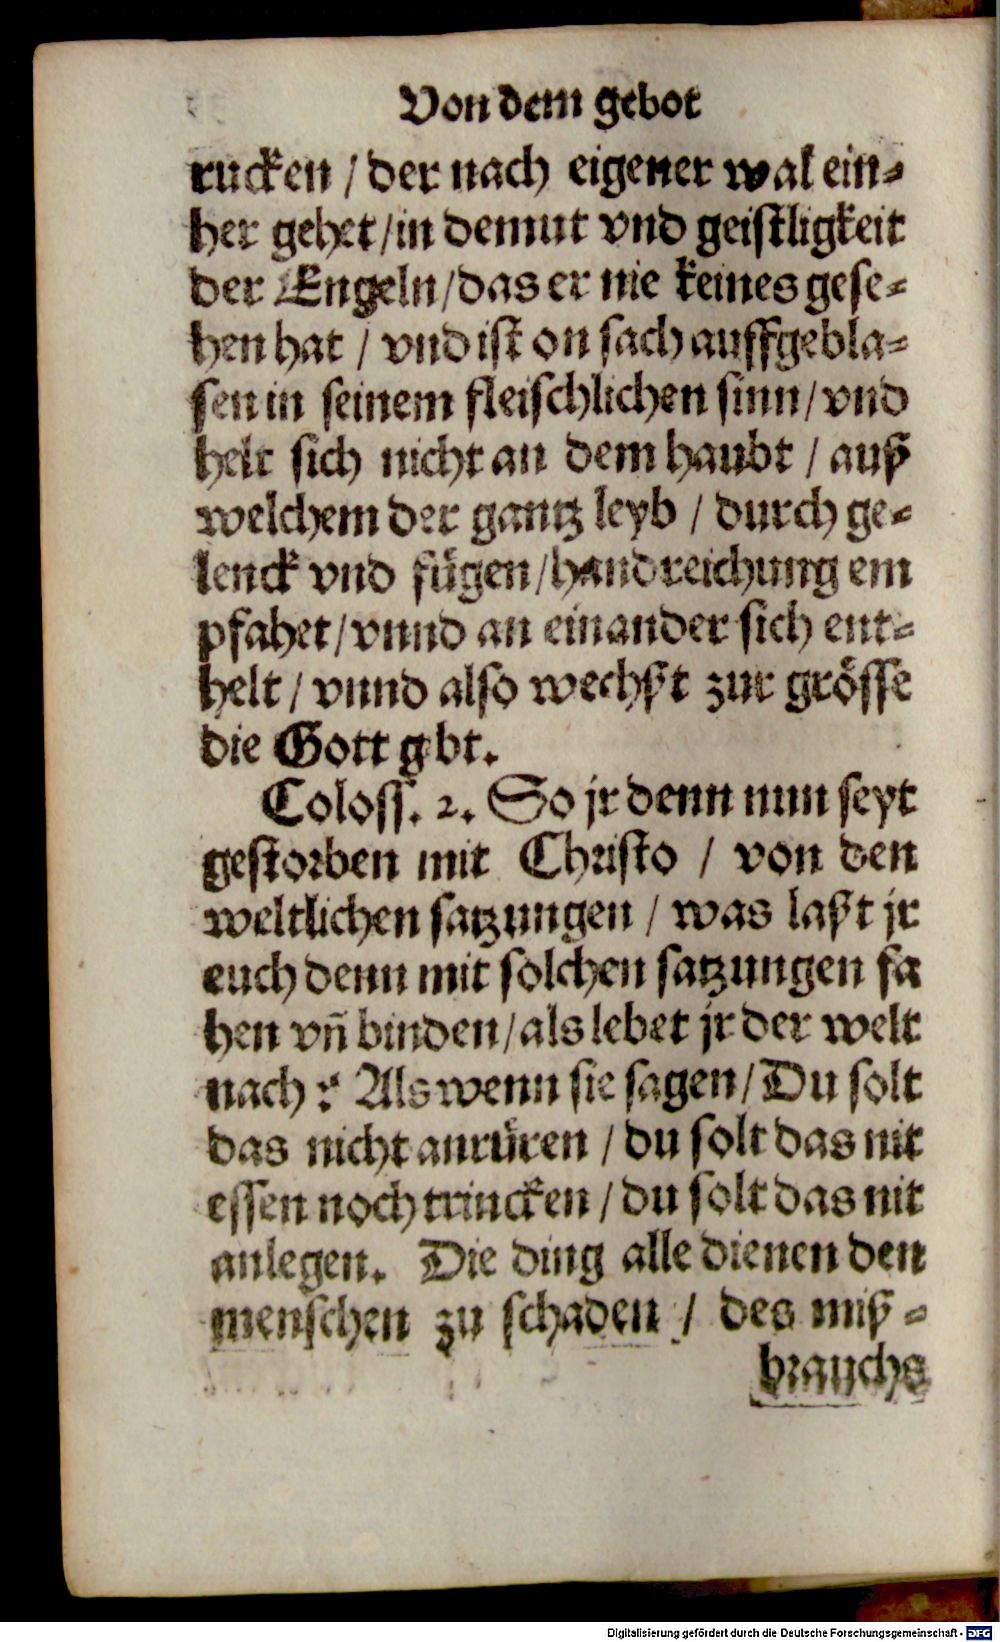 Von dem gebot
rucken / der nach eigener wal ein⸗
her gehet / in demut vnd geistligkeit
der Engeln / das er nie keines gese⸗
hen hat / vnd ist on sach auffgebla⸗
sen in seinem fleischlichen sinn / vnd
helt sich nicht an dem haubt / auß
welchem der gantz leyb / durch ge⸗
lenck vnd fügen / handreichung em
pfahet / vnnd an einander sich ent⸗
helt / vnnd also wechßt zur grösse
die Gott gbt.
Coloss. 2. So jr denn nun seyt
gestorben mit Christo / von den
weltlichen satzungen / was laßt jr
euch denn mit solchen satzungen fa
hen vñ binden / als lebet jr der welt
nach? Als wenn sie sagen / Du solt
das nicht anrüren / du solt das nit
essen noch trincken / du solt das nit
anlegen. Die ding alle dienen den
menschen zu schaden / des miß⸗
brauchs
Digitalisierung gefördert durch die Deutsche Forschungsgemeinschaft - DFG